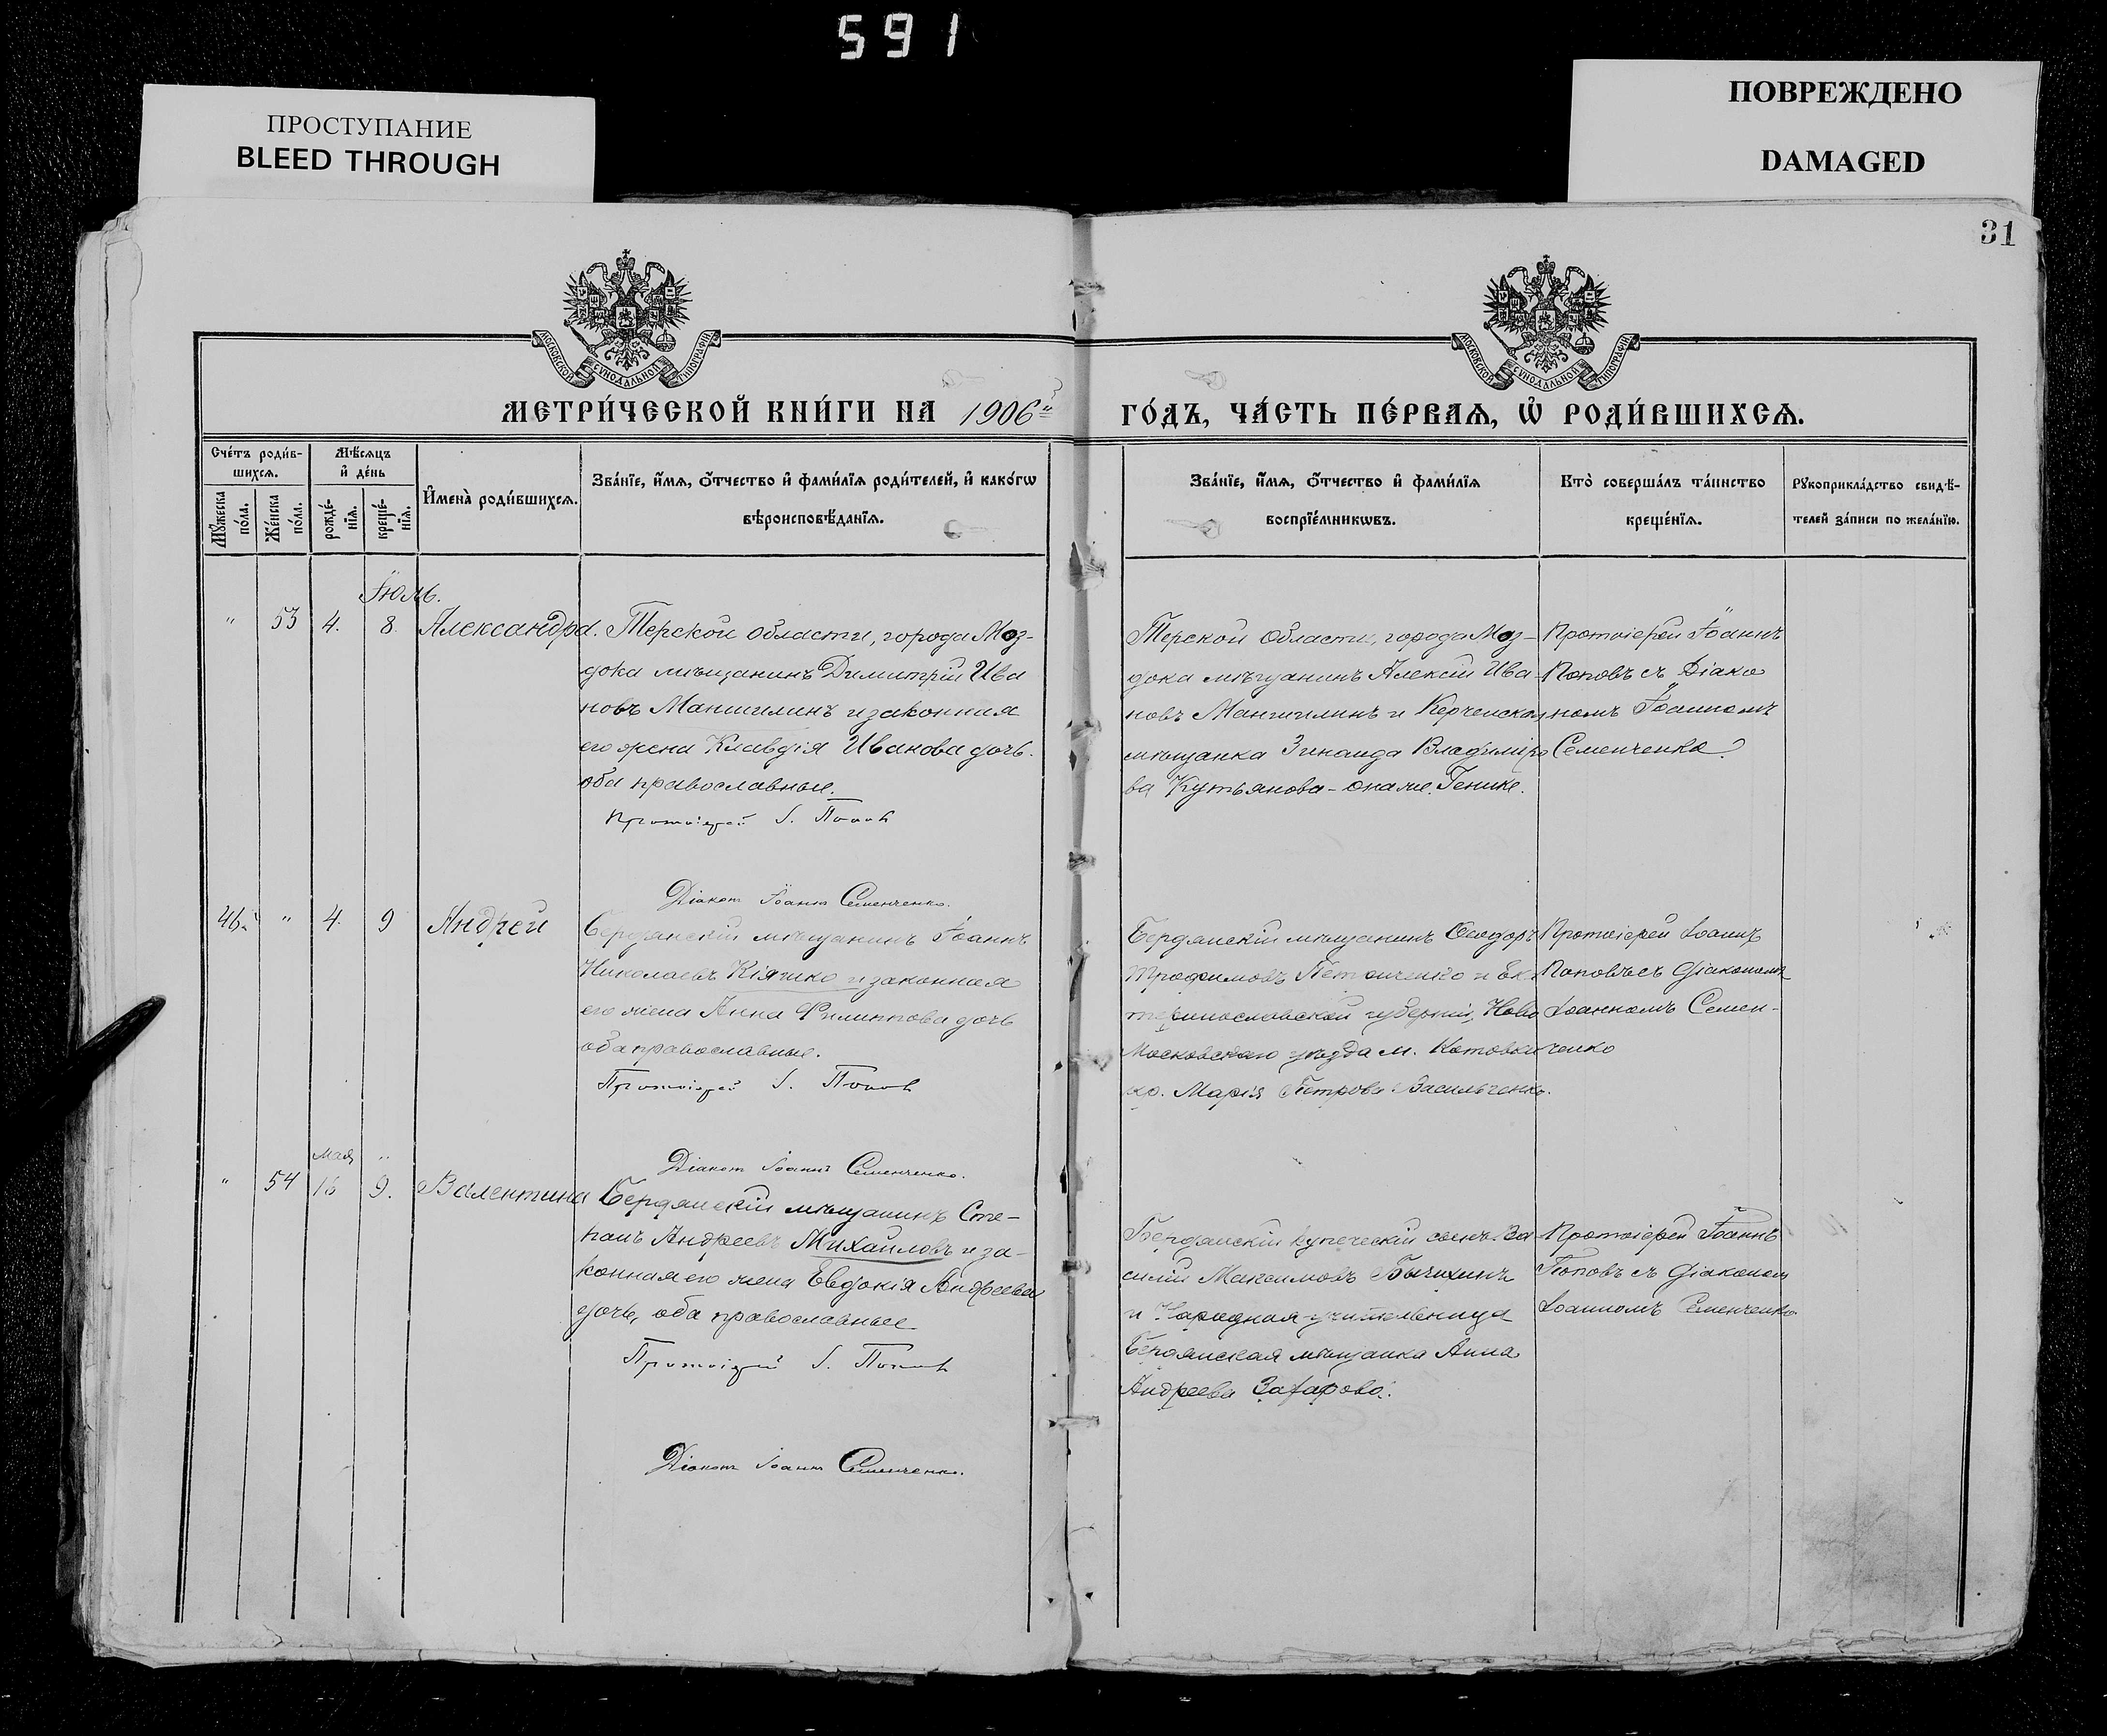 591
ПРОСТУПАНИЕ
BLEED THROUGH
ПОВРЕЖДЕНО
DAMAGED
31
МОСКОВСКОЙ СѴНОДАЛЬНОЙ ТИПОГРАФІИ
МОСКОВСКОЙ СѴНОДАЛЬНОЙ ТИПОГРАФІИ
МЕТРИ́ЧЕСКОЙ КНИ́ГИ НА 1906й
ГО́ДЪ, ЧА́СТЬ ПЕ́РВАѦ, Ѡ҆ РОДИ́ВШИХСѦ.
Сче́тъ роди́в-
шихсѧ.
Мꙋжеска по́ла.
Же́нска по́ла.
Мѣ́сѧцъ
и҆ де́нь
рожде́-
нїѧ.
креще́-
нїѧ.
И҆мена̀ роди́вшихсѧ.
Зва́нїе, и҆́мѧ, ѻ҆́тчество и҆ фами́лїѧ роди́телей, и҆ како́гѡ
вѣроисповѣ́данїѧ.
Зва́нїе, и҆́мѧ, ѻ҆́тчество и҆ фами́лїѧ
воспрїе́мникѡвъ.
Кто̀ соверша́лъ та́инство
креще́нїѧ.
Рꙋкоприкла́дство свидѣ́-
телей за́писи по жела́нїю.
Іюль.
" 53 4. 8. Александра.
Терской области, города Моз-
дока мѣщанинъ Димитрій Ива
новъ Маншилинъ и законная
его жена Клавдія Иванова дочь.
оба православные.
Протоіерей І. Попов
Діакон Іоанн Семенченко.
Терской области, города Моз-
дока мѣщанинъ Алексій Ива
новъ Маншилинъ и Керченская
мѣщанка Зинаида Владиміро
ва Кутьянова - она же. Генике.
Протоіерей Іоаннъ
Поповъ съ Діако
номъ Іоанномъ
Семенченко
46. " 4. 9 Андрей
Бердянскій мѣщанинъ Іоаннъ
Николаевъ Кіяшко и законная
его жена Анна Филиппова дочь
оба православные.
Протоіерей І. Попов
Діакон Іоанн Семенченко.
Бердянскій мѣщанинъ Ѳеодоръ
Трофимовъ и Ека
теринославской губерніи, Ново
Московскаго уѣзда м.
кр. Марія Петрова Васильченко.
Протоіерей Іоаннъ
Поповъ съ Діакономъ
Іоанномъ Семен-
ченко
Мая "
" 54 16 9. Валентина
Бердянскій мѣщанинъ Сте-
панъ Андреевъ Михайловъ и за-
конная его жена Евдокія Андреева
дочь, оба православные
Протоіерей І. Попов
Діакон Іоанн Семенченко.
Бердянскій купеческій сынъ Ва
силій Максимовъ Бычихинъ
и Народная учительница
Бердянская мѣщанка Анна
Андреева Захарова.
Протоіерей Іоаннъ
Поповъ съ Діакономъ
Іоанномъ Семенченко